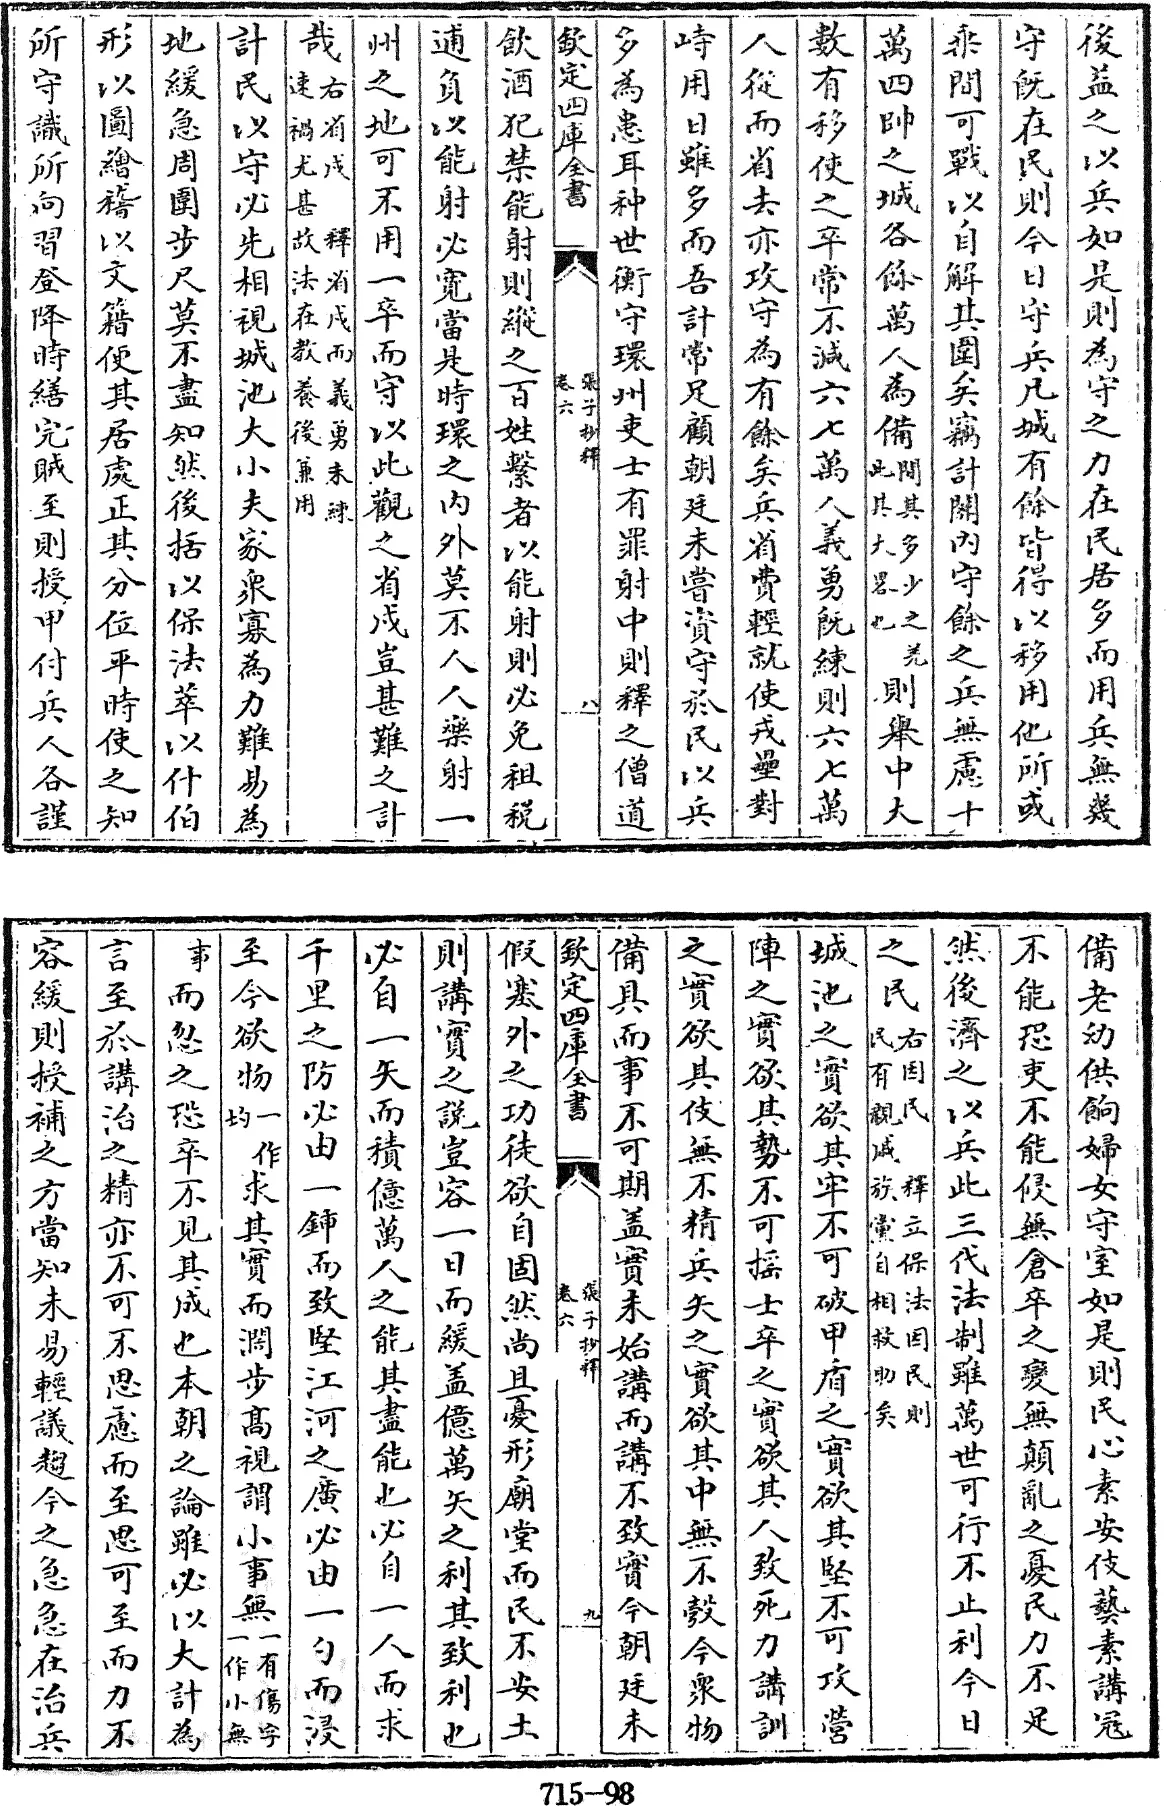 後益之以兵如是則為守之力在民居多而用兵無幾
守既在民則今日守兵凡城有餘皆得以移用他所或
乘間可戰以自解其圍矣竊計關內守餘之兵無慮十
萬四帥之城各餘萬人為備間其多少之差此其大畧也則舉中大
數有移使之卒常不減六七萬人義勇既練則六七萬
人從而省去亦攻守為有餘矣兵省費輕就使戎壘對
峙用日雖多而吾計常足顧朝廷未嘗資守於民以兵
多為患耳种世衡守環州吏士有罪射中則釋之僧道
欽定四庫全書 張子抄釋 卷六 八
飲酒犯禁能射則縱之百姓繫者以能射則必免租税
逋負以能射必寛當是時環之内外莫不人人樂射一
州之地可不用一卒而守以此觀之省戍豈甚難之計
哉右省戍 釋省戍而義勇未練速禍尤甚故法在教養後兼用
計民以守必先相視城池大小夫家衆寡為力難易為
地緩急周圍步尺莫不盡知然後括以保法萃以什伯
形以圖繪稽以文籍便其居處正其分位平時使之知
所守識所向習登降時繕完賊至則授甲付兵人各謹
備老幼供餉婦女守室如是則民心素安伎藝素講寇
不能恐吏不能侵無倉卒之變無顛亂之憂民力不足
然後濟之以兵此三代法制雖萬世可行不止利今日
之民右因民 釋立保法因民則民有親戚族黨自相救助矣
城池之實欲其牢不可破甲盾之實欲其堅不可攻營
陣之實欲其勢不可揺士卒之實欲其人致死力講訓
之實欲其伎無不精兵矢之實欲其中無不彀今衆物
備具而事不可期盖實未始講而講不致實今朝廷未
欽定四庫全書 張子抄釋 卷六 九
假塞外之功徒欲自固然尚且憂形廟堂而民不安土
則講實之説豈容一日而緩盖億萬矢之利其致利也
必自一矢而積億萬人之能其盡能也必自一人而求
千里之防必由一鍤而致堅江河之廣必由一勺而浸
至今欲物一作均求其實而濶步髙視謂小事無一有傷字一作小無
事而忽之恐卒不見其成也本朝之論雖必以大計為
言至於講治之精亦不可不思慮而至思可至而力不
容緩則授補之方當知未易輕議趨今之急急在治兵
715-98